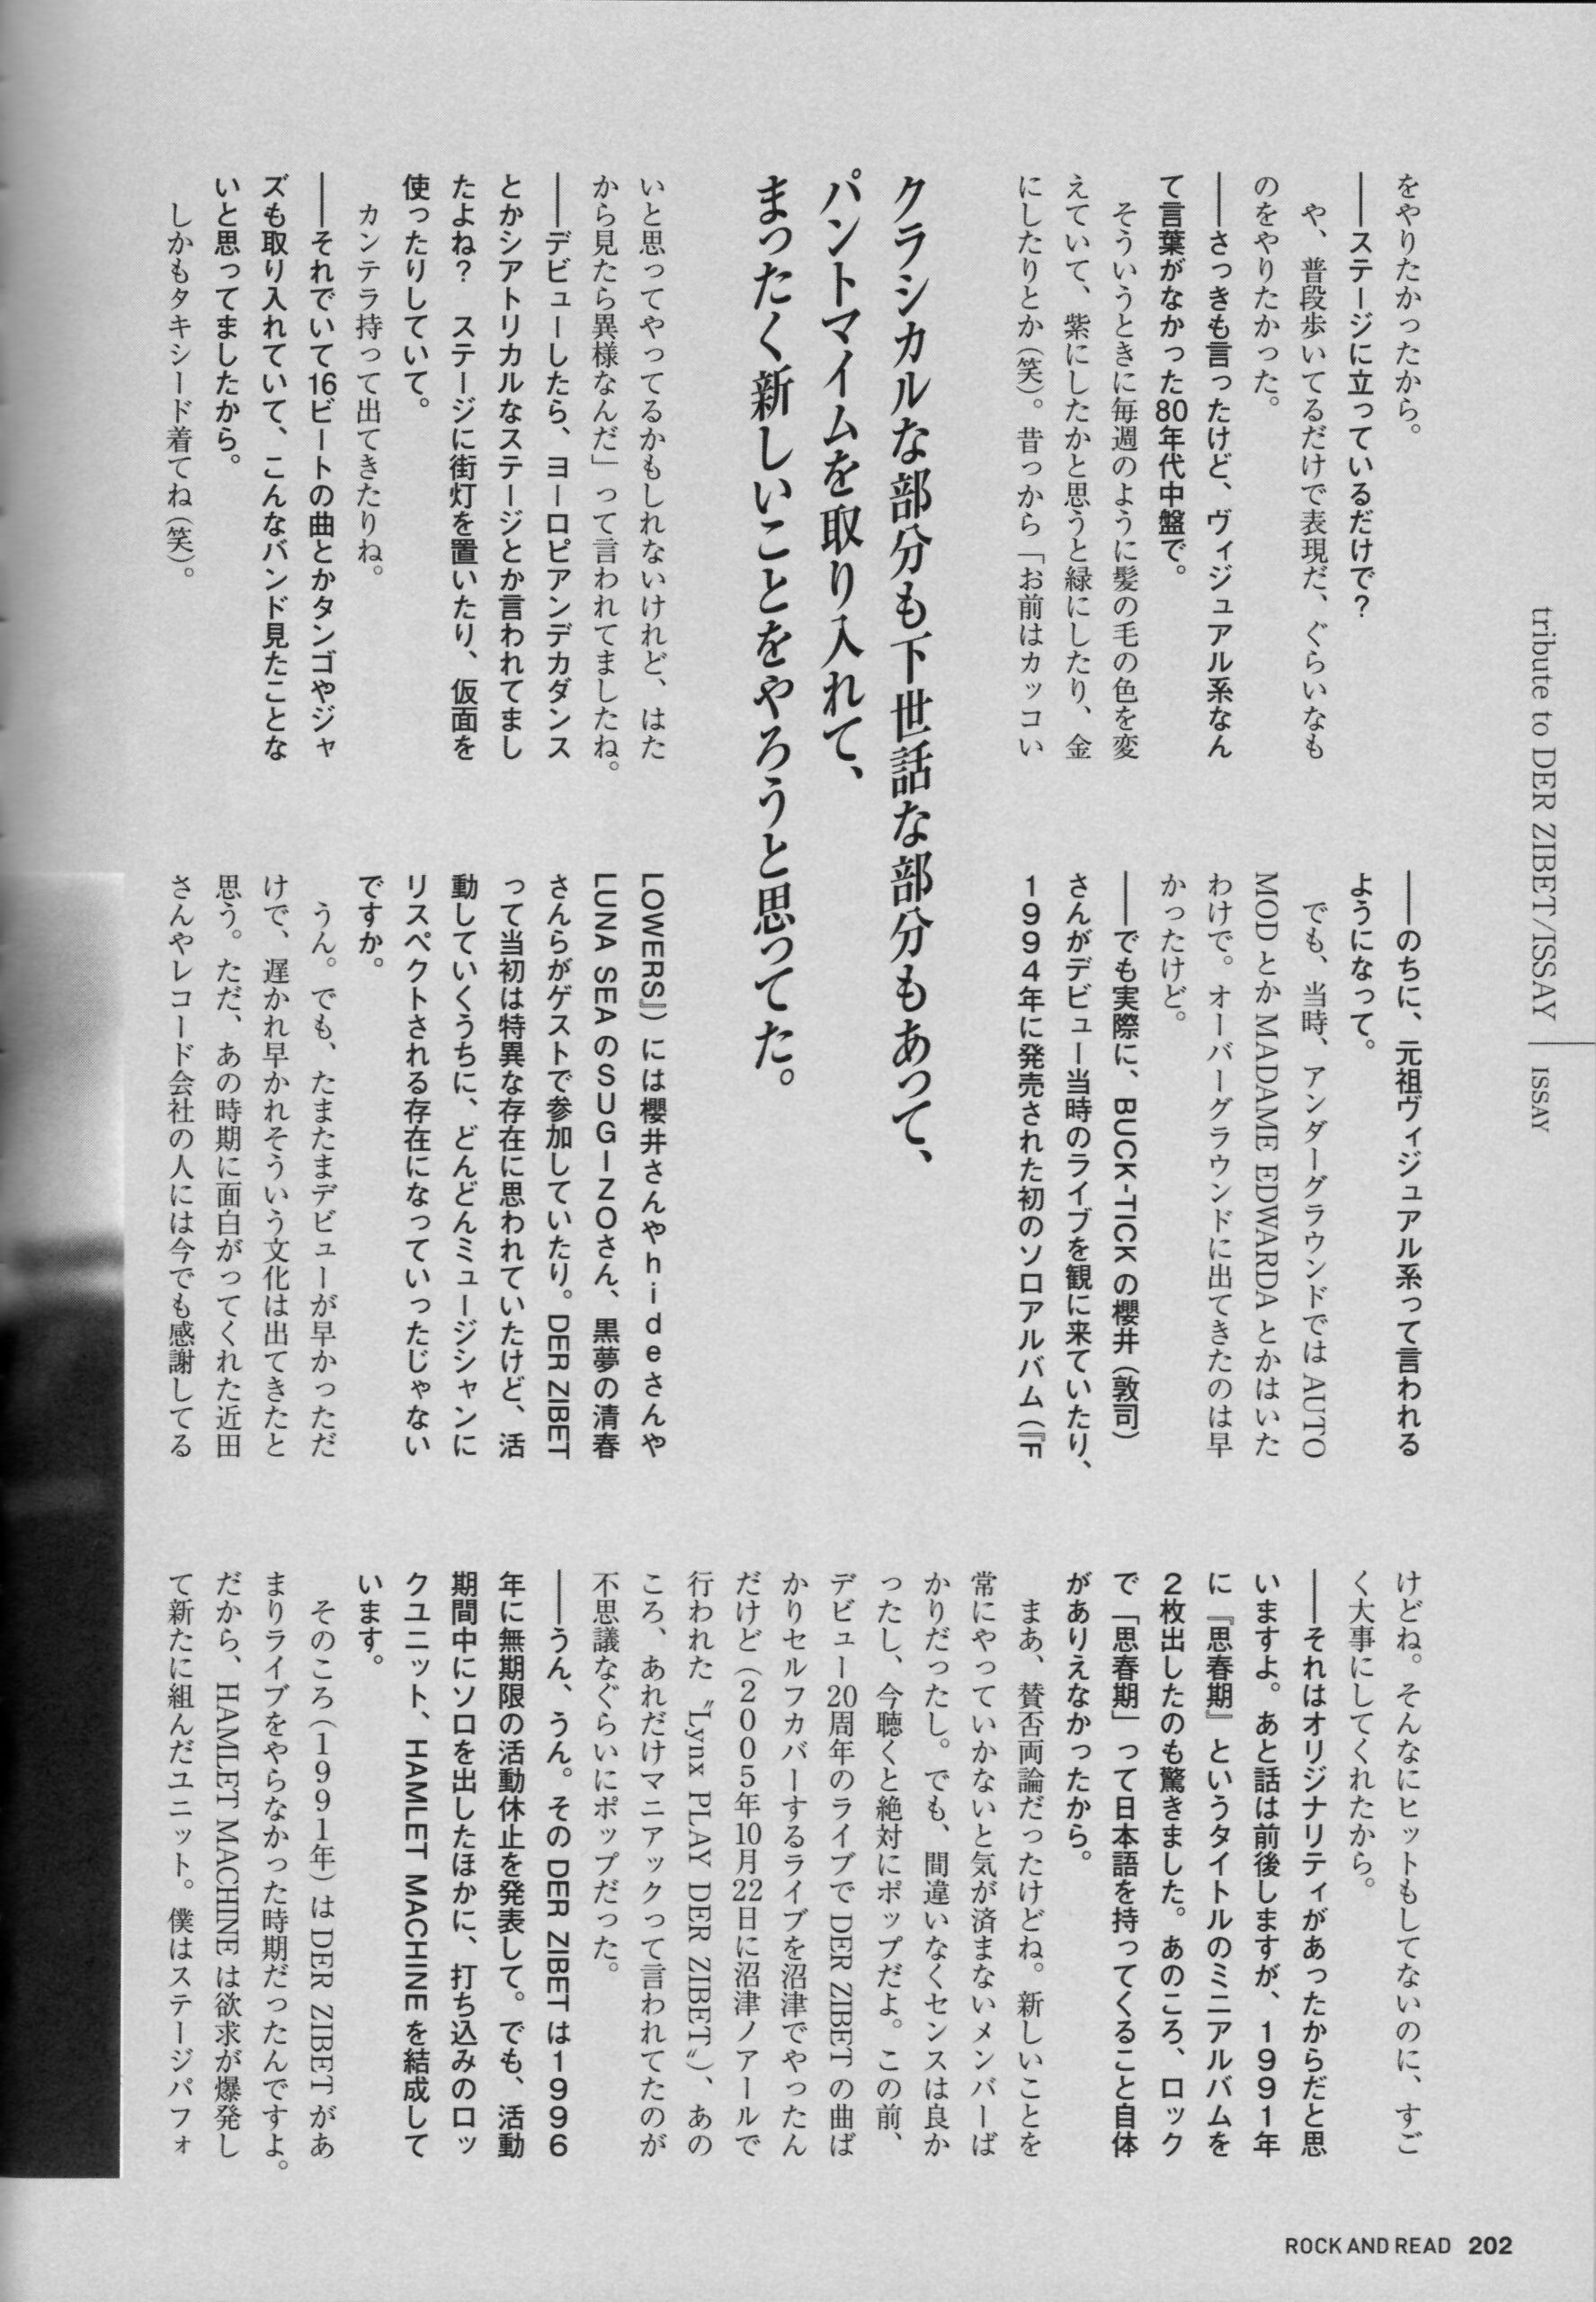 tribute to DER ZIBET/ISSAY | ISSAY
をやりたかったから。
――ステージに立っているだけで？
や、普段歩いてるだけで表現だ、ぐらいなも
のをやりたかった。
――さっきも言ったけど、ヴィジュアル系なん
て言葉がなかった80年代中盤で。
そういうときに毎週のように髪の毛の色を変
えていて、紫にしたかと思うと緑にしたり、金
にしたりとか（笑）。昔っから「お前はカッコい
クラシカルな部分も下世話な部分もあって、
パントマイムを取り入れて、
まったく新しいことをやろうと思ってた。
いと思ってやってるかもしれないけれど、はた
から見たら異様なんだ」って言われてましたね。
――デビューしたら、ヨーロピアンデカダンス
とかシアトリカルなステージとか言われてまし
たよね？　ステージに街灯を置いたり、仮面を
使ったりしていて。
カンテラ持って出てきたりね。
――それでいて16ビートの曲とかタンゴやジャ
ズも取り入れていて、こんなバンド見たことな
いと思ってましたから。
しかもタキシード着てね（笑）。
――のちに、元祖ヴィジュアル系って言われる
ようになって。
でも、当時、アンダーグラウンドでは AUTO
MOD とか MADAME EDWARDA とかはいた
わけで。オーバーグラウンドに出てきたのは早
かったけど。
――でも実際に、BUCK-TICK の櫻井（敦司）
さんがデビュー当時のライブを観に来ていたり、
１９９４年に発売された初のソロアルバム（『F
LOWERS』）には櫻井さんやｈｉｄｅさんや
LUNA SEA のＳＵＧＩＺＯさん、黒夢の清春
さんらがゲストで参加していたり。DER ZIBET
って当初は特異な存在に思われていたけど、活
動していくうちに、どんどんミュージシャンに
リスペクトされる存在になっていったじゃない
ですか。
うん。でも、たまたまデビューが早かっただ
けで、遅かれ早かれそういう文化は出てきたと
思う。ただ、あの時期に面白がってくれた近田
さんやレコード会社の人には今でも感謝してる
けどね。そんなにヒットもしてないのに、すご
く大事にしてくれたから。
――それはオリジナリティがあったからだと思
いますよ。あと話は前後しますが、１９９１年
に『思春期』というタイトルのミニアルバムを
２枚出したのも驚きました。あのころ、ロック
で「思春期」って日本語を持ってくること自体
がありえなかったから。
まあ、賛否両論だったけどね。新しいことを
常にやっていかないと気が済まないメンバーば
かりだったし。でも、間違いなくセンスは良か
ったし、今聴くと絶対にポップだよ。この前、
デビュー20周年のライブで DER ZIBET の曲ば
かりセルフカバーするライブを沼津でやったん
だけど（２００５年10月22日に沼津ノアールで
行われた〝Lynx PLAY DER ZIBET〟）、あの
ころ、あれだけマニアックって言われてたのが
不思議なぐらいにポップだった。
――うん、うん。その DER ZIBET は１９９６
年に無期限の活動休止を発表して。でも、活動
期間中にソロを出したほかに、打ち込みのロッ
クユニット、HAMLET MACHINE を結成して
います。
そのころ（１９９１年）は DER ZIBET があ
まりライブをやらなかった時期だったんですよ。
だから、HAMLET MACHINE は欲求が爆発し
て新たに組んだユニット。僕はステージパフォ
ROCK AND READ 202